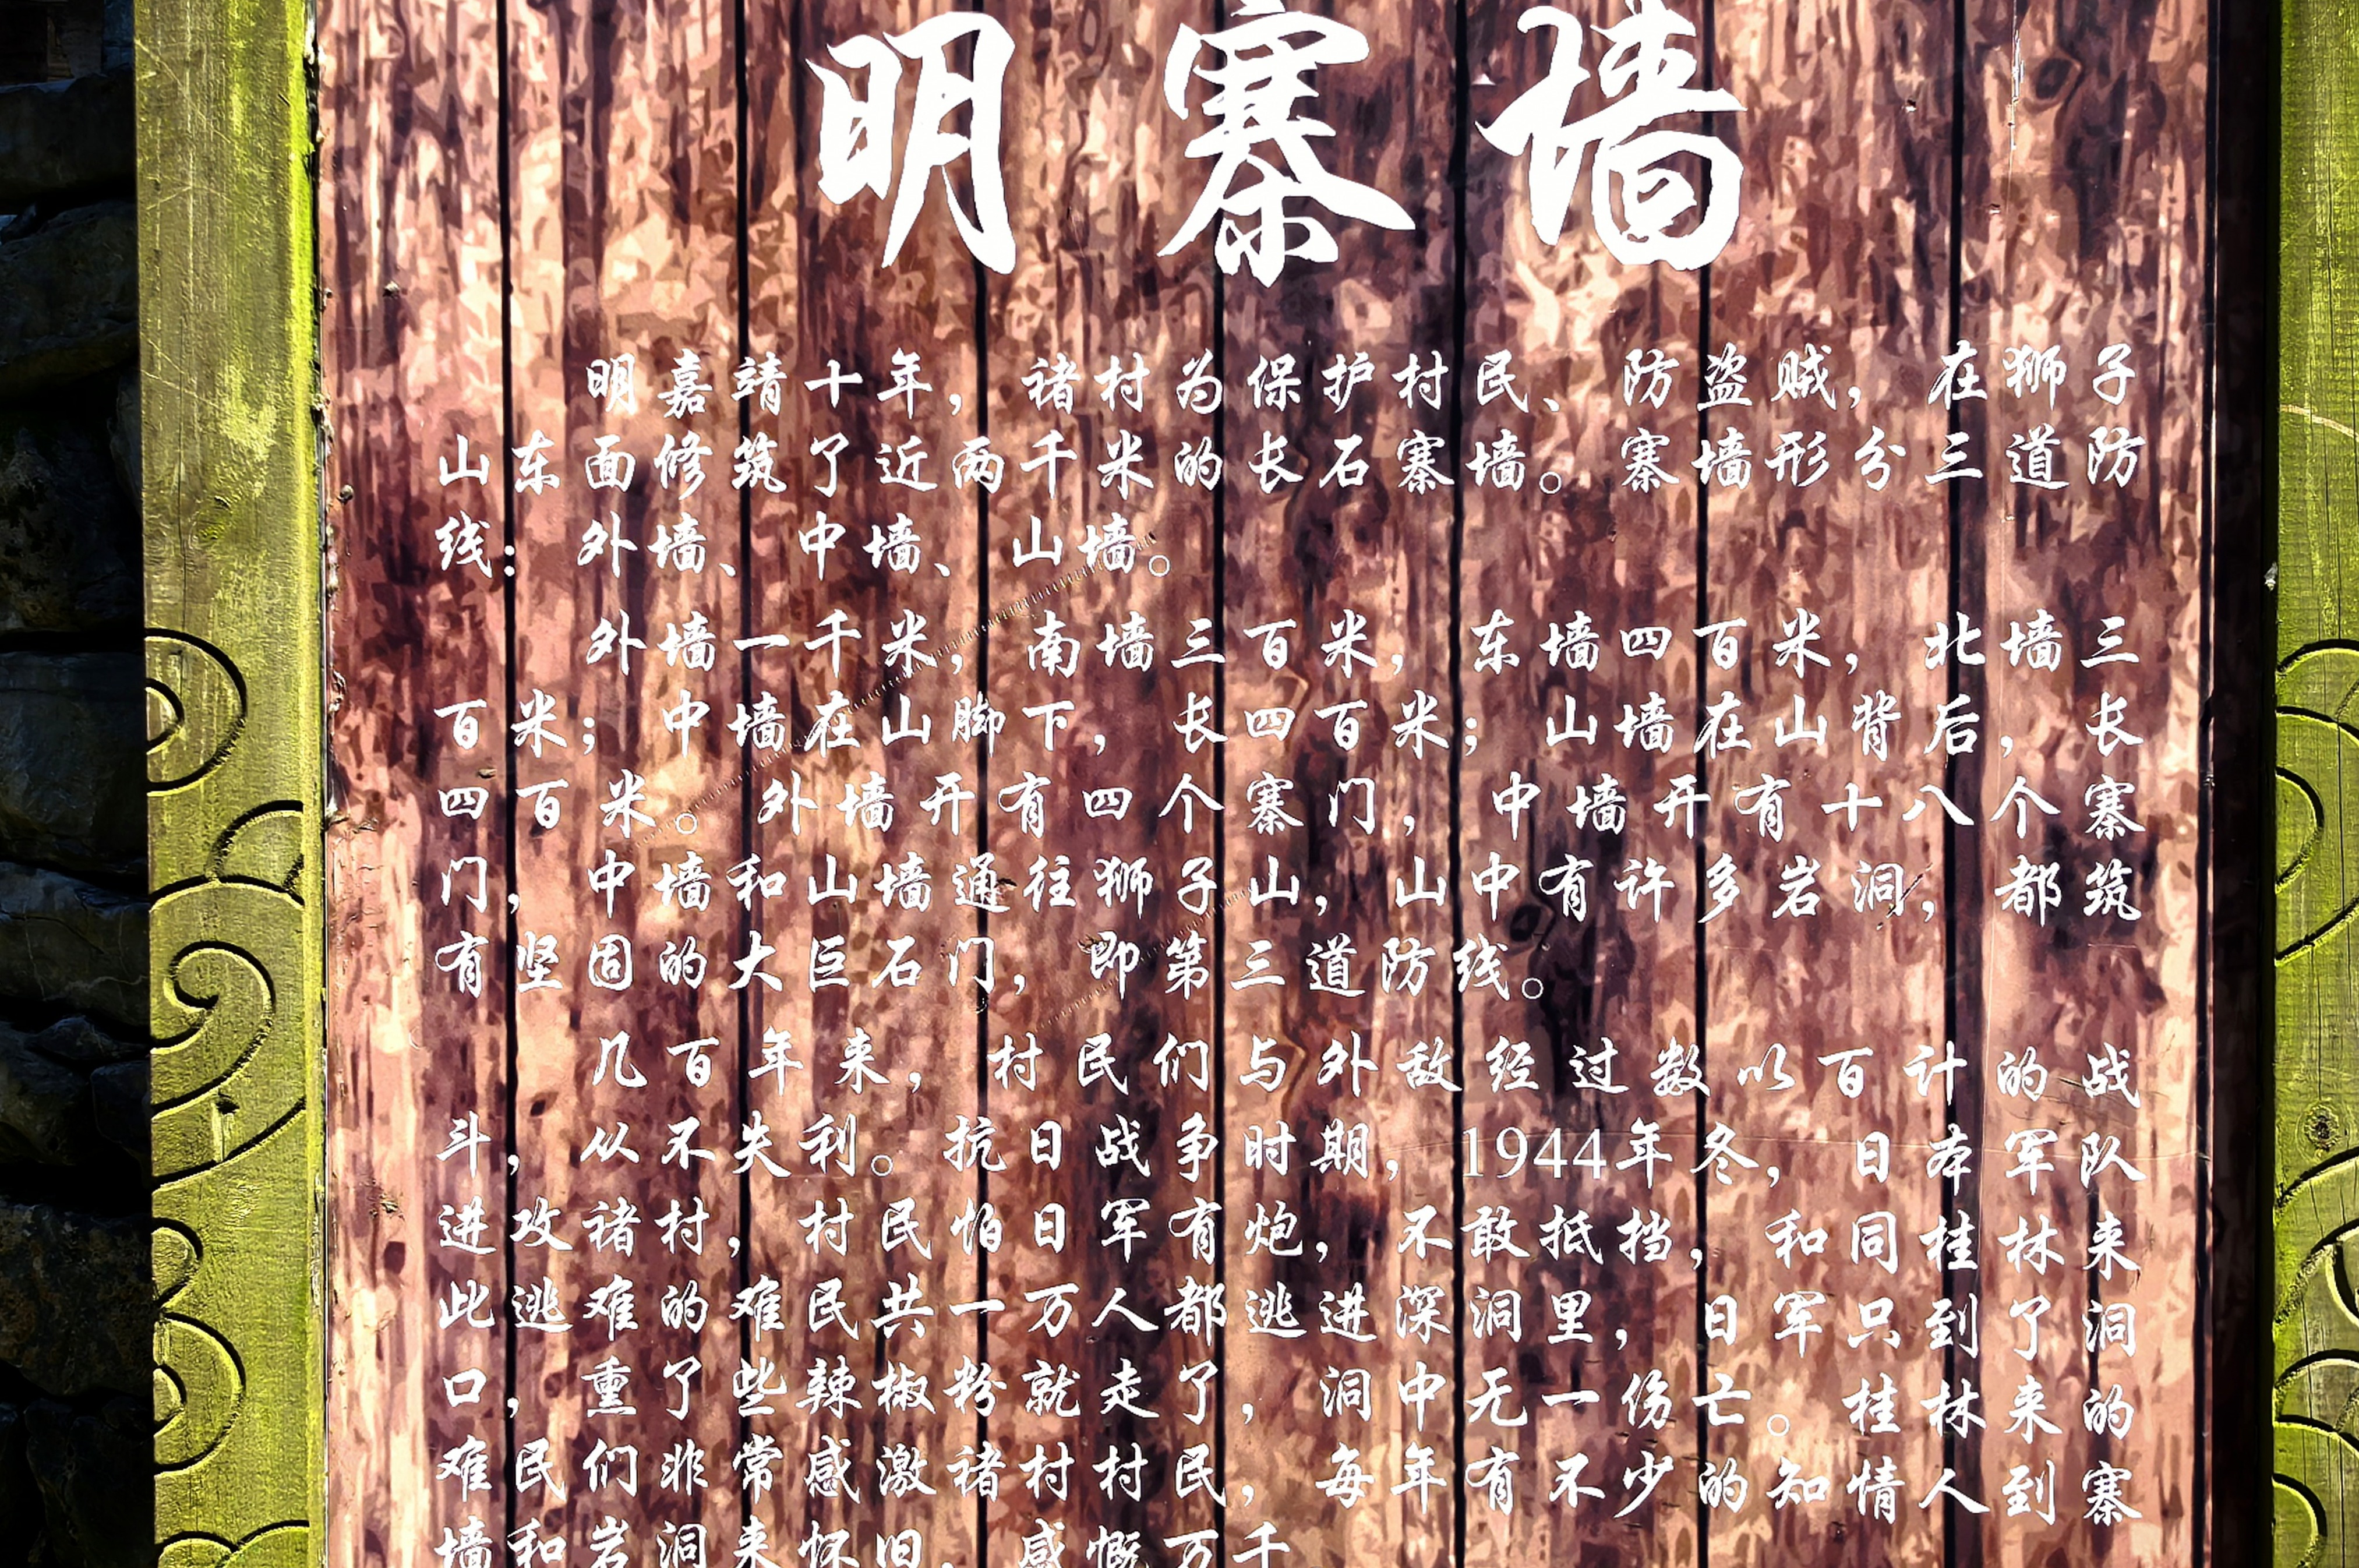 明寨墙
明嘉靖十年，诸村为保护村民、防盗贼，在狮子
山东面修筑了近两千米的长石寨墙。寨墙形分三道防
线：外墙、中墙、山墙。
外墙一千米，南墙三百米，东墙四百米，北墙三
百米；中墙在山脚下，长四百米；山墙在山背后，长
四百米。外墙开有四个寨门，中墙开有十八个寨
门，中墙和山墙通往狮子山，山中有许多岩洞，都筑
有坚固的大巨石门，即第三道防线。
几百年来，村民们与外敌经过数以百计的战
斗，从不失利。抗日战争时期，1944年冬，日本军队
进攻诸村，村民怕日军有炮，不敢抵挡，和同桂林来
此逃难的难民共一万人都逃进深洞里，日军只到了洞
口，熏了些辣椒粉就走了，洞中无一伤亡。桂林来的
难民们非常感激诸村村民，每年有不少的知情人到寨
墙和岩洞来怀旧，感慨万千